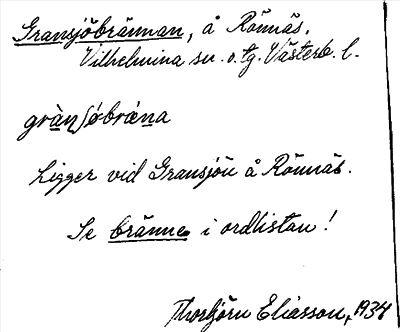 Gransjöbrännan, å Rönnäs,
Vilhelmina sn. o. tg. Västerb. l.
grànʃöbräna
Ligger vid Gransjön å Rönnäs.
Se bränne i ordlistan!
Thorbjörn Eliasson, 1934